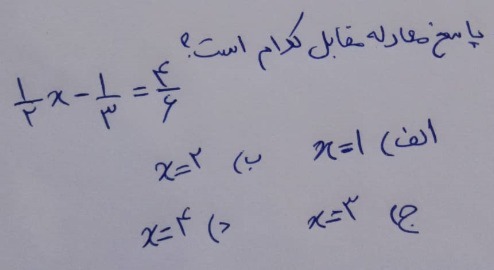 پاسخ معادله مقابل کدام است؟
۱/۲ x - ۱/۳ = ۴/۶
الف) x=۱ ب) x=۲
ج) x=۳ د) x=۴